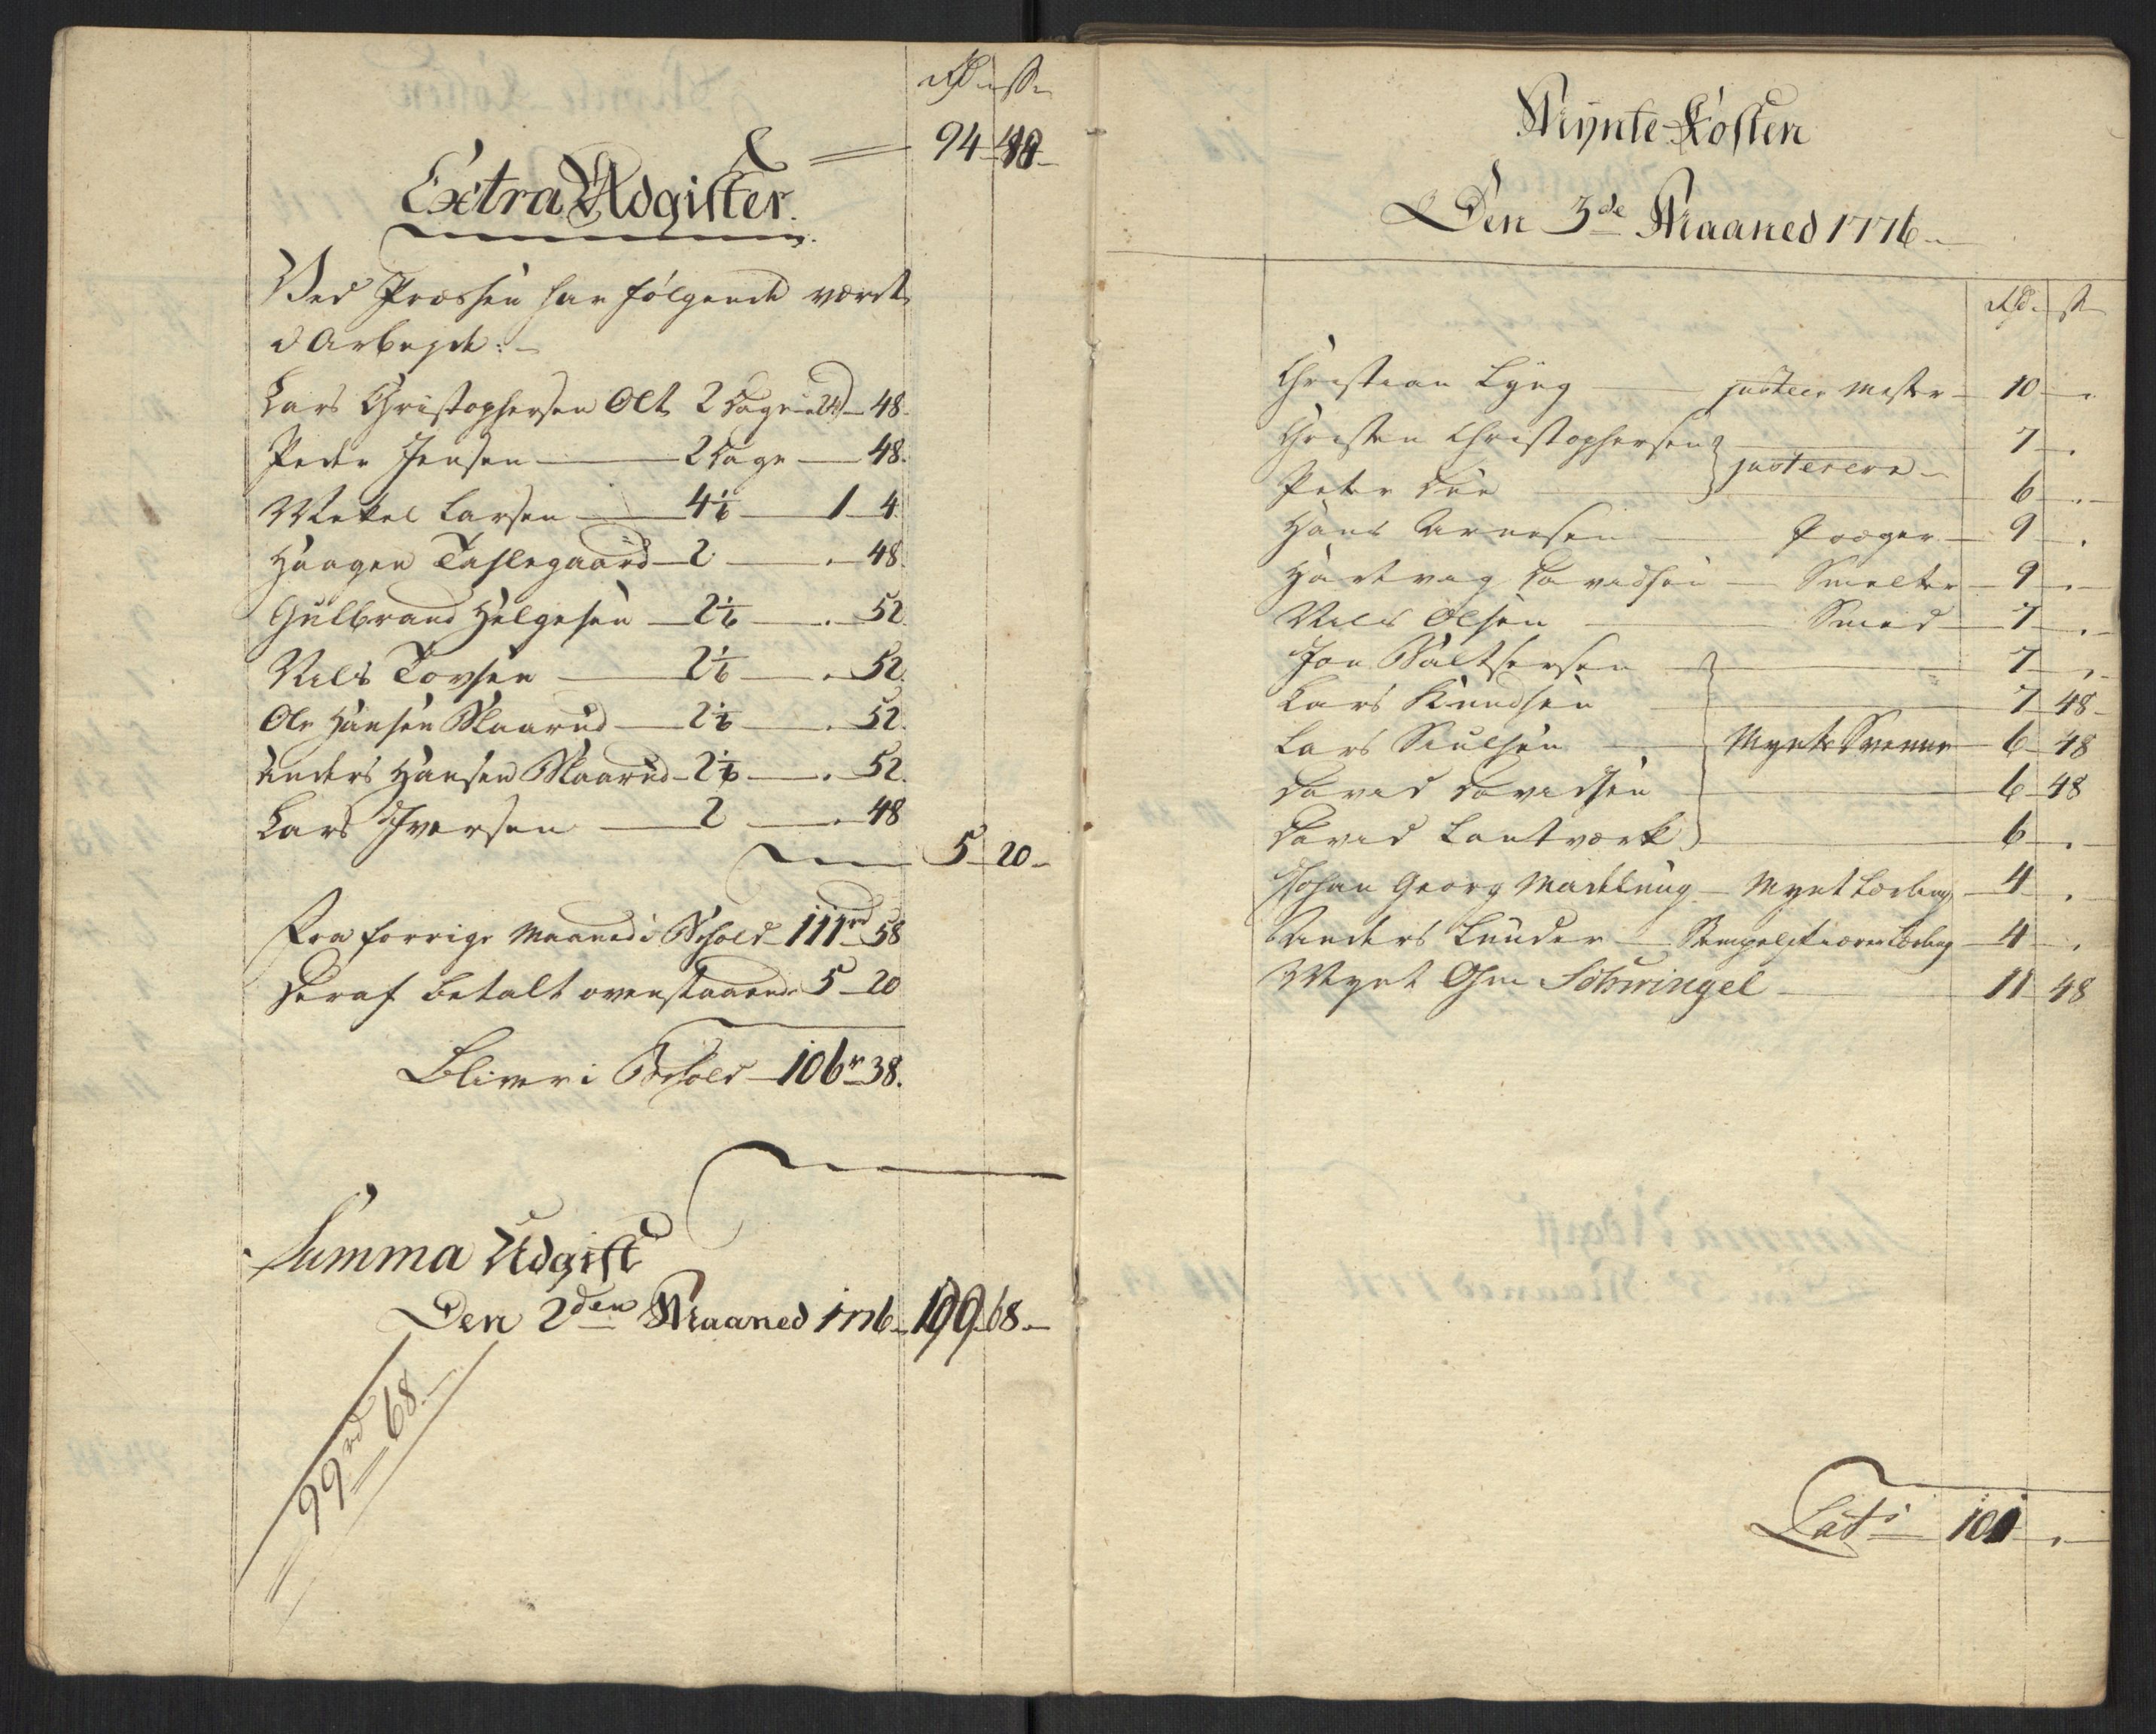 Rd. s.
94 48
Extra Udgifter.
Ved Prossen har følgende været
i Arbejde:
Lars Christophersen Olt 2 Dage a 24 48.
Peder Jensen 2 Dage 48.
Mekel Larsen 4 1/6 1 4
Haagen Taslegaard 2 . 48.
Gulbrand Helgesen 2 1/6 . 52.
Nils Tovsen 2 1/6 . 52.
Ole Hansen Skaarud 2 1/6 . 52.
Anders Hansen Skaarud 2 1/6 . 52.
Lars Iversen 2 . 48
5 20
Fra forrige Maaned i Behold 111 rd 58
Heraf betalt ovenstaaende 5 20
Bliver i Behold 106 r 38.
Summa Udgift
Den 2den Maaned 1776 99 68
99 rd 68
Mynte-Kosten
Den 3de Maaned 1776
Rd. s
Christian Lyng justeer Mester 10 .
Christen Christophersen 7 .
justerere
Peter Due 6 .
Hans Arnesen Præger 9 .
Hartvig Davidsen Smelter 9 .
Nils Olsen Smed 7 .
Jon Baltsersen 7 .
Lars Knudsen 7 48
Lars Siulsen Mynt Svenne 6 48
David Davidsen 6 48
David Lantværk 6 .
Johan Georg Madelung Mynt Lærling 4 .
Anders Lunder Stempelskiærer Lærling 4 .
Mynt Schwingel 11 48
Lats 101 .